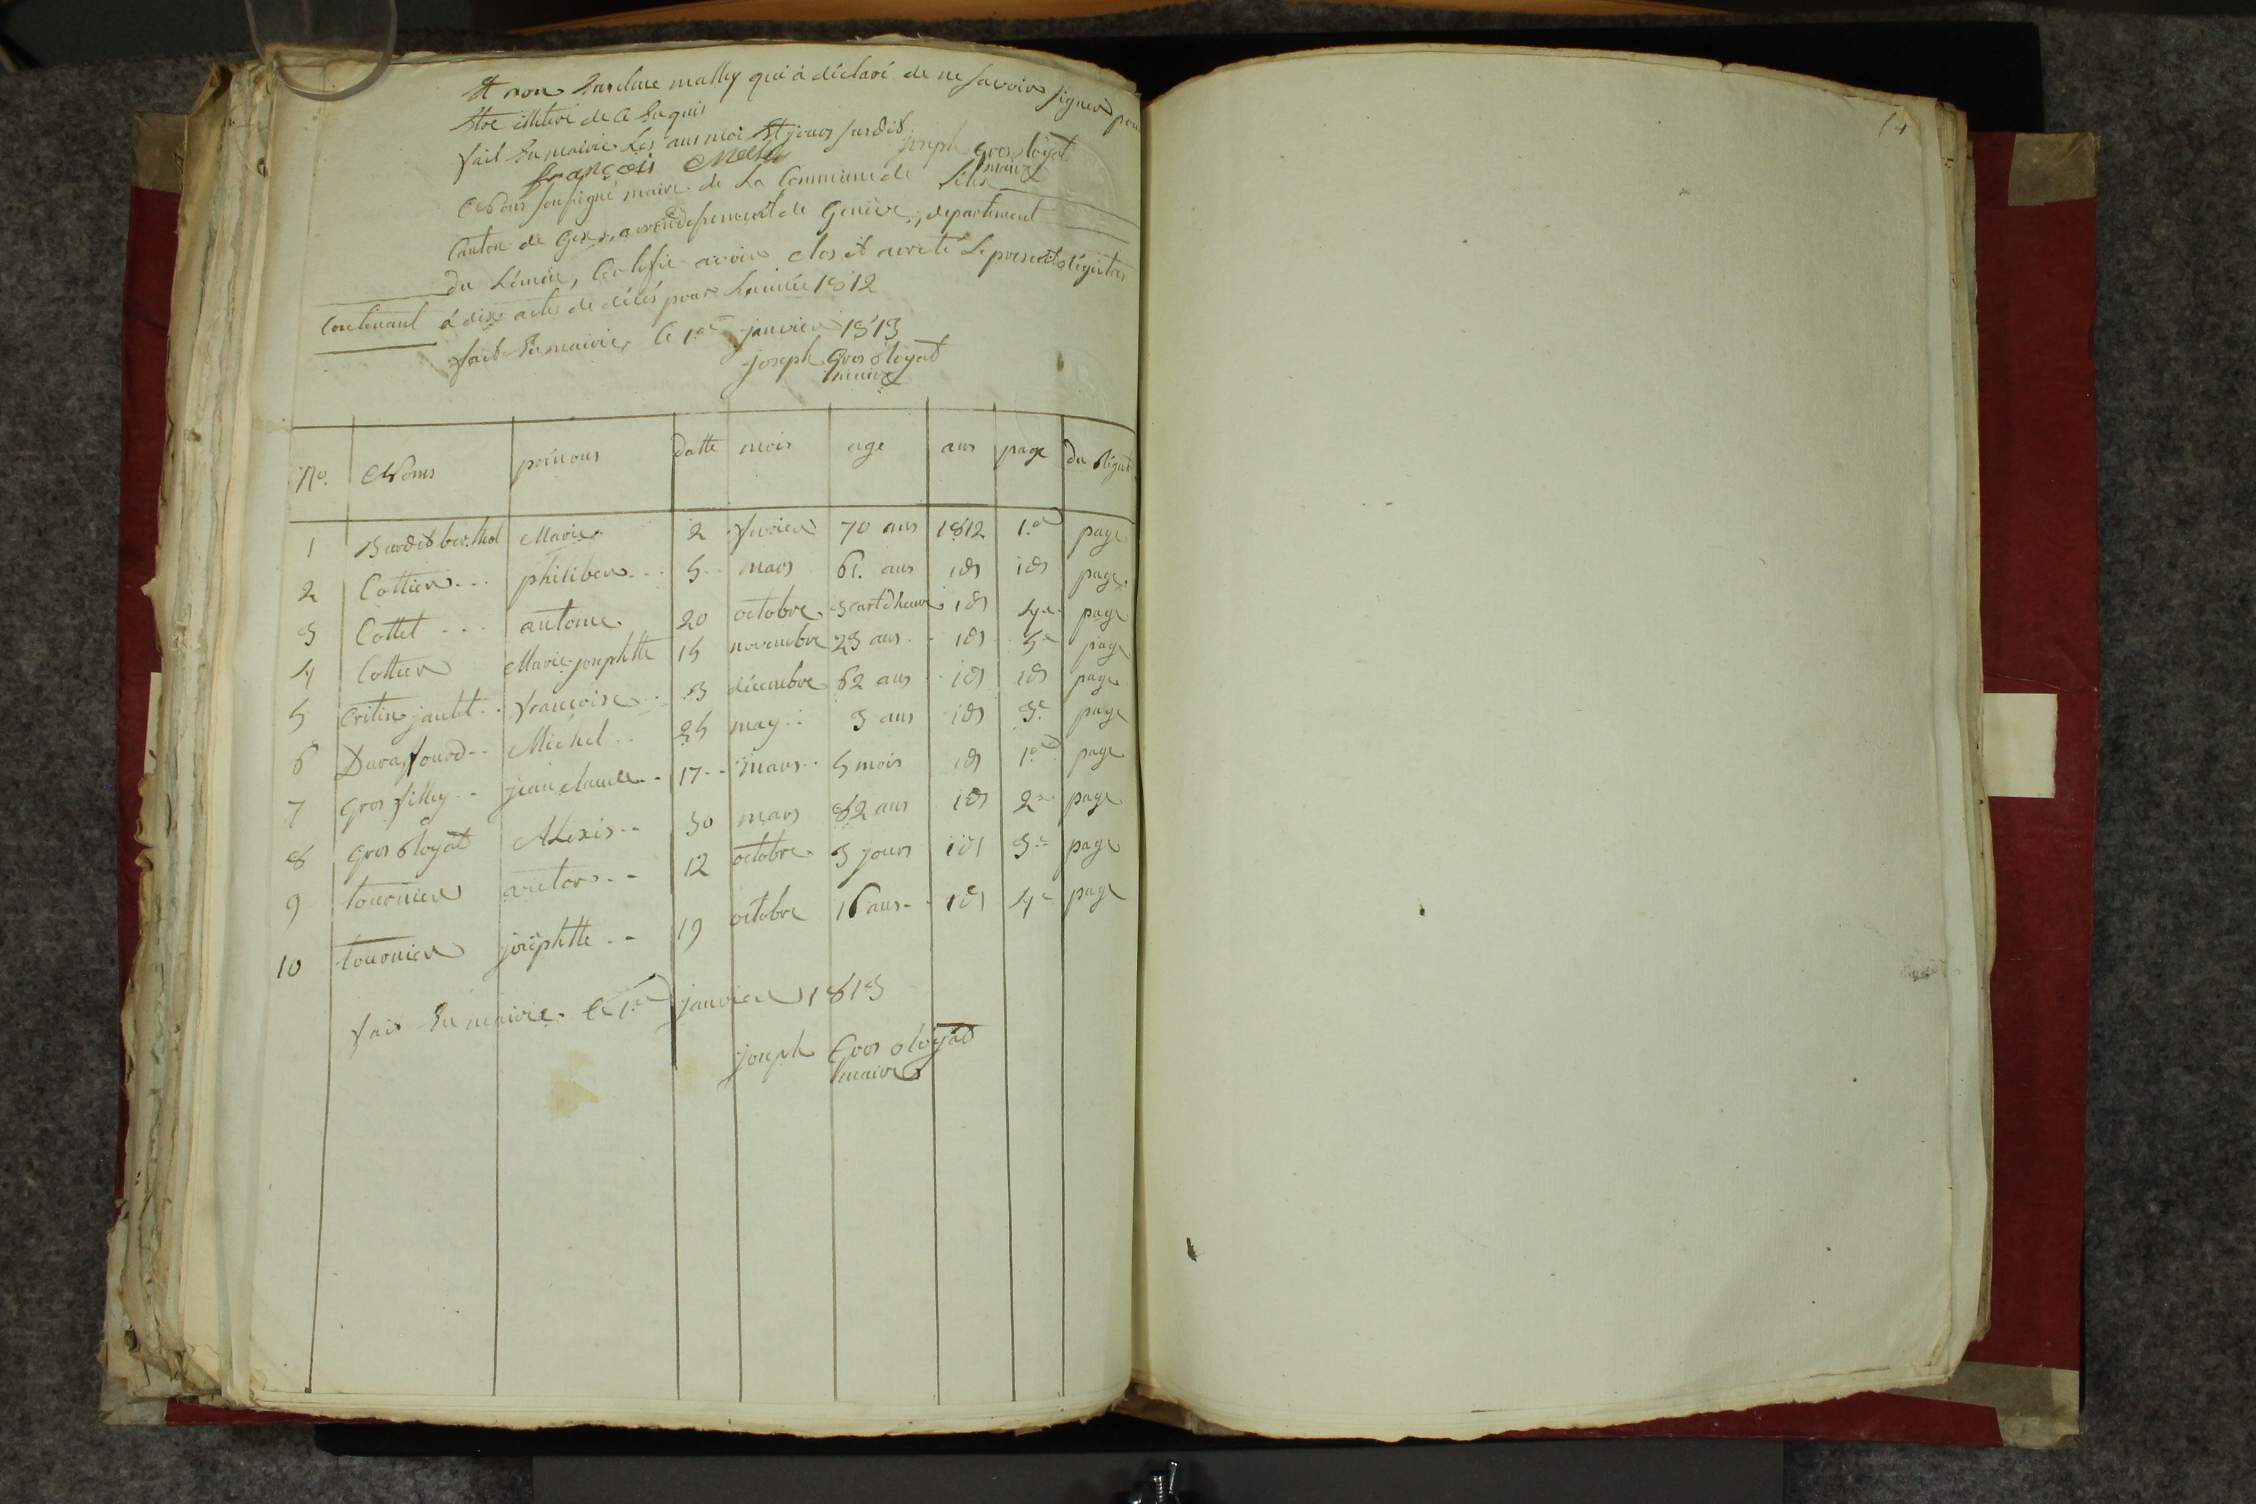 Et non anselme malley qui à déclaré de ne savoir signer pour
Etre illitéré de ce Enquis
fait En mairie Les ans moi Et jours susdit
joseph gros ôloyat
maire
françois
Nous sousigné maire de La Commune de
Canton de Gex, arrondissement de Genève, departement
du Léman, Certifie avoir clos et arreté Le present Régistre
Contenant à dix actes de décés pour L'année 1812
fait En mairie, Le 1.er janvier 1813
joseph Gros ôloyat
maire
No. Noms prénons datte mois age ans page du Régistre
1 Marie 2 fevrier 70 ans 1812 1.er page
2 Cottier philiber 5 mars 61. ans id id page
3 Cottet antoine 20 octobre 3 cart d'heure id 4e page
4 Cottier Marie josephtte 15 novembre 23 ans id 5e page
5 françoise 3 décembre 62 ans id id page
6 Duraffourd Michel 25 may 3 ans id 3e page
7 Gros filley jean claude 17 mars 5 mois id 1.er page
8 Gros ôloyat Alexis 30 mars 82 ans id 2e page
9 tournier victor 12 octobre 3 jours id 3e page
10 tournier josephtte 19 octobre 16 ans id 4e page
fait En mairie Le 1.er janvier 1813
joseph Gros oloyat
maire